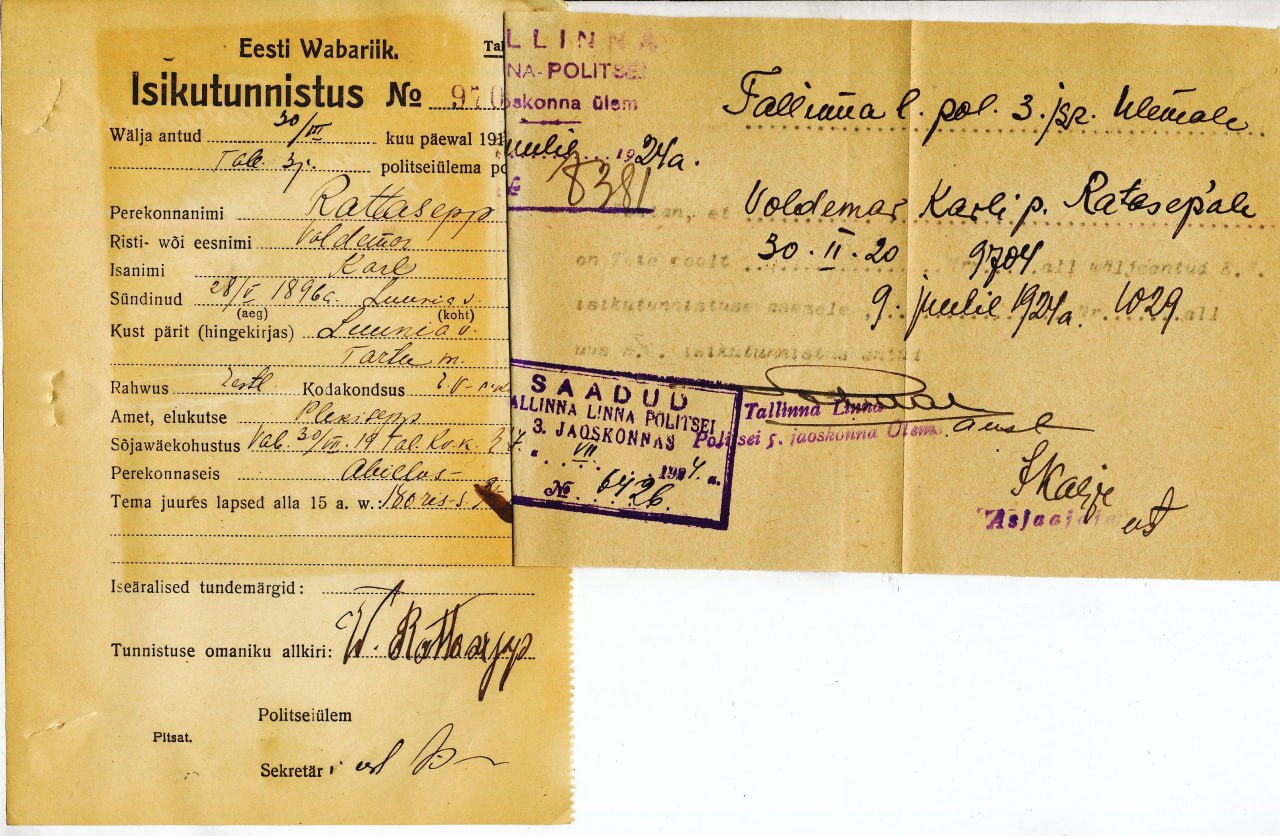 Eesti Wabariik.
Isikutunnistus No 970
Wälja antud 30/III kuu päewal 191
Tal. 3j. politseiülema
Perekonnanimi Rattasepp
Risti- wõi eesnimi Voldemar
Isanimi Karl
Sündinud 28/V 1896a Luunia v.
(aeg) (koht)
Kust pärit (hingekirjas) Luunia v.
Tartu m.
Rahwus Eestl. Kodakondsus E.V.
Amet, elukutse Plekisepp
Sõjawäekohustus Vab. 30/VII 19 Tal.
Perekonnaseis Abillus
Tema juures lapsed alla 15 a. w. Boris
Iseäralised tundemärgid:
Tunnistuse omaniku allkiri: W. Rattasepp
Politseiülem
Pitsat.
Sekretär
LLINNA
NA-POLITSEI
skonna ülem
juulil 1924a.
№ 8381
Tallinna l. pol. 3. jsk. Ülemale
et Voldemar Karli p. Ratasepale
on Teie poolt 30. II. 20 Nr. 9704 all wäljaantud E.V.
isikutunnistuse asemele 9. juulil 1924a. Nr. 1029 all
uus E.V. isikutunnistus antud
Tallinna Linna
Politsei 5. jaoskonna Ülem
Asjaajaja
SAADUD
ALLINNA LINNA POLITSEI
3. JAOSKONNAS
VII 1924. a.
№ 6426.